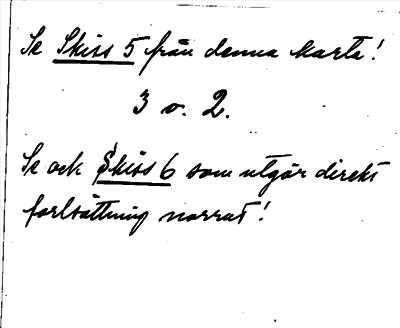 Se Skiss 5 från denna karta!
3 v. 2.
Se ock Skiss 6 som utgör direkt
fortsättning norrut!